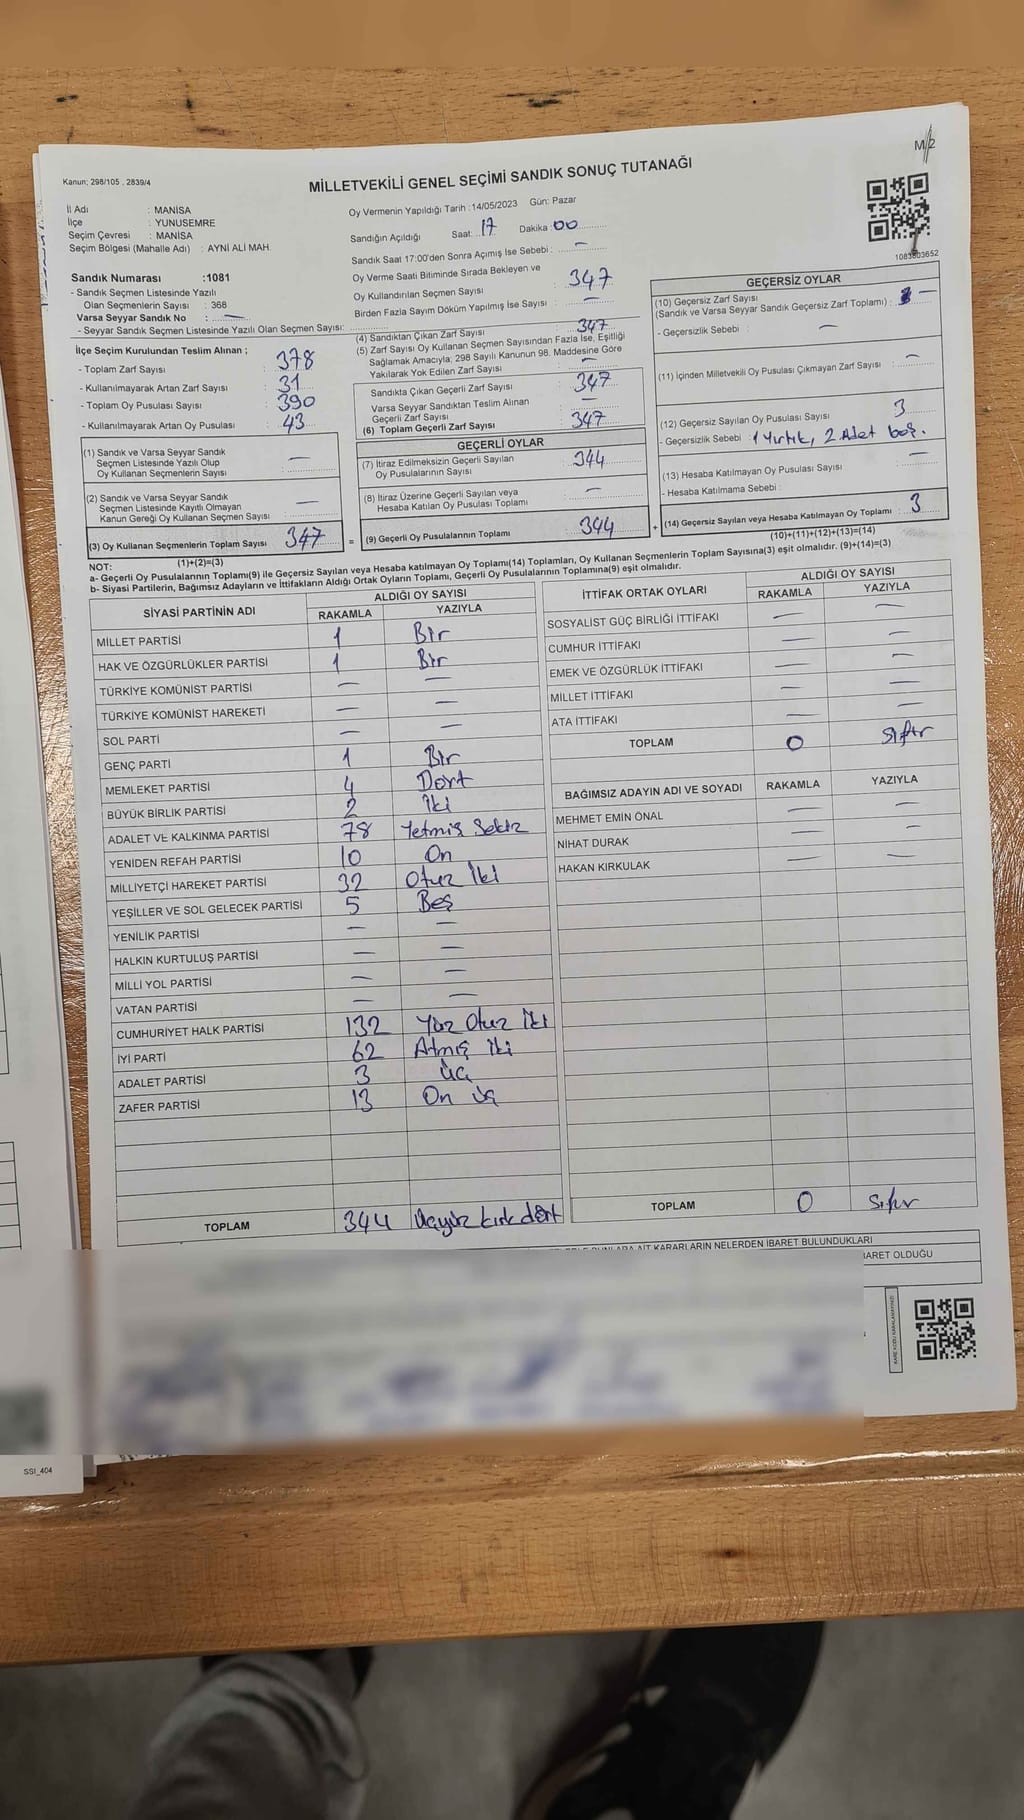 M/2
Kanun; 298/105 , 2839/4
MİLLETVEKİLİ GENEL SEÇİMİ SANDIK SONUÇ TUTANAĞI
İl Adı : MANİSA
İlçe : YUNUSEMRE
Seçim Çevresi : MANİSA
Seçim Bölgesi (Mahalle Adı) : AYNİ ALİ MAH.
Oy Vermenin Yapıldığı Tarih :14/05/2023 Gün: Pazar
Sandığın Açıldığı Saat: 17 Dakika :00
Sandık Saat 17:00'den Sonra Açımış İse Sebebi : —
Sandık Numarası :1081
- Sandık Seçmen Listesinde Yazılı
Olan Seçmenlerin Sayısı : 368
Varsa Seyyar Sandık No : —
- Seyyar Sandık Seçmen Listesinde Yazılı Olan Seçmen Sayısı:
Oy Verme Saati Bitiminde Sırada Bekleyen ve
Oy Kullandırılan Seçmen Sayısı : 347
Birden Fazla Sayım Döküm Yapılmış İse Sayısı : —
1083803652
İlçe Seçim Kurulundan Teslim Alınan ;
- Toplam Zarf Sayısı : 378
- Kullanılmayarak Artan Zarf Sayısı : 31
- Toplam Oy Pusulası Sayısı : 390
- Kullanılmayarak Artan Oy Pusulası : 43
(1) Sandık ve Varsa Seyyar Sandık
Seçmen Listesinde Yazılı Olup
Oy Kullanan Seçmenlerin Sayısı : —
(2) Sandık ve Varsa Seyyar Sandık
Seçmen Listesinde Kayıtlı Olmayan
Kanun Gereği Oy Kullanan Seçmen Sayısı : —
(3) Oy Kullanan Seçmenlerin Toplam Sayısı 347
(1)+(2)=(3)
(4) Sandıktan Çıkan Zarf Sayısı : 347
(5) Zarf Sayısı Oy Kullanan Seçmen Sayısından Fazla İse, Eşitliği
Sağlamak Amacıyla; 298 Sayılı Kanunun 98. Maddesine Göre
Yakılarak Yok Edilen Zarf Sayısı : —
Sandıkta Çıkan Geçerli Zarf Sayısı : 347
Varsa Seyyar Sandıktan Teslim Alınan
Geçerli Zarf Sayısı : —
(6) Toplam Geçerli Zarf Sayısı : 347
GEÇERLİ OYLAR
(7) İtiraz Edilmeksizin Geçerli Sayılan
Oy Pusulalarının Sayısı : 344
(8) İtiraz Üzerine Geçerli Sayılan veya
Hesaba Katılan Oy Pusulası Toplamı : —
= (9) Geçerli Oy Pusulalarının Toplamı 344
GEÇERSİZ OYLAR
(10) Geçersiz Zarf Sayısı
(Sandık ve Varsa Seyyar Sandık Geçersiz Zarf Toplamı) : —
- Geçersizlik Sebebi : —
(11) İçinden Milletvekili Oy Pusulası Çıkmayan Zarf Sayısı : —
(12) Geçersiz Sayılan Oy Pusulası Sayısı : 3
- Geçersizlik Sebebi : 1 Yırtık, 2 Adet boş.
(13) Hesaba Katılmayan Oy Pusulası Sayısı : —
- Hesaba Katılmama Sebebi :
+ (14) Geçersiz Sayılan veya Hesaba Katılmayan Oy Toplamı : 3
(10)+(11)+(12)+(13)=(14)
NOT:
a- Geçerli Oy Pusulalarının Toplamı(9) ile Geçersiz Sayılan veya Hesaba katılmayan Oy Toplamı(14) Toplamları, Oy Kullanan Seçmenlerin Toplam Sayısına(3) eşit olmalıdır. (9)+(14)=(3)
b- Siyasi Partilerin, Bağımsız Adayların ve İttifakların Aldığı Ortak Oyların Toplamı, Geçerli Oy Pusulalarının Toplamına(9) eşit olmalıdır.
SİYASİ PARTİNİN ADI ALDIĞI OY SAYISI
RAKAMLA YAZIYLA
MİLLET PARTİSİ 1 Bir
HAK VE ÖZGÜRLÜKLER PARTİSİ 1 Bir
TÜRKİYE KOMÜNİST PARTİSİ — —
TÜRKİYE KOMÜNİST HAREKETİ — —
SOL PARTİ — —
GENÇ PARTİ 1 Bir
MEMLEKET PARTİSİ 4 Dört
BÜYÜK BİRLİK PARTİSİ 2 İki
ADALET VE KALKINMA PARTİSİ 78 Yetmiş Sekiz
YENİDEN REFAH PARTİSİ 10 On
MİLLİYETÇİ HAREKET PARTİSİ 32 Otuz İki
YEŞİLLER VE SOL GELECEK PARTİSİ 5 Beş
YENİLİK PARTİSİ — —
HALKIN KURTULUŞ PARTİSİ — —
MİLLİ YOL PARTİSİ — —
VATAN PARTİSİ — —
CUMHURİYET HALK PARTİSİ 132 Yüz Otuz İki
İYİ PARTİ 62 Atmış İki
ADALET PARTİSİ 3 Üç
ZAFER PARTİSİ 13 On üç
TOPLAM 344 Üçyüz kırk dört
İTTİFAK ORTAK OYLARI ALDIĞI OY SAYISI
RAKAMLA YAZIYLA
SOSYALİST GÜÇ BİRLİĞİ İTTİFAKI — —
CUMHUR İTTİFAKI — —
EMEK VE ÖZGÜRLÜK İTTİFAKI — —
MİLLET İTTİFAKI — —
ATA İTTİFAKI — —
TOPLAM 0 Sıfır
BAĞIMSIZ ADAYIN ADI VE SOYADI RAKAMLA YAZIYLA
MEHMET EMİN ÖNAL — —
NİHAT DURAK — —
HAKAN KIRKULAK — —
TOPLAM 0 Sıfır
AİT KARARLARIN NELERDEN İBARET BULUNDUKLARI
İBARET OLDUĞU
SSI_404